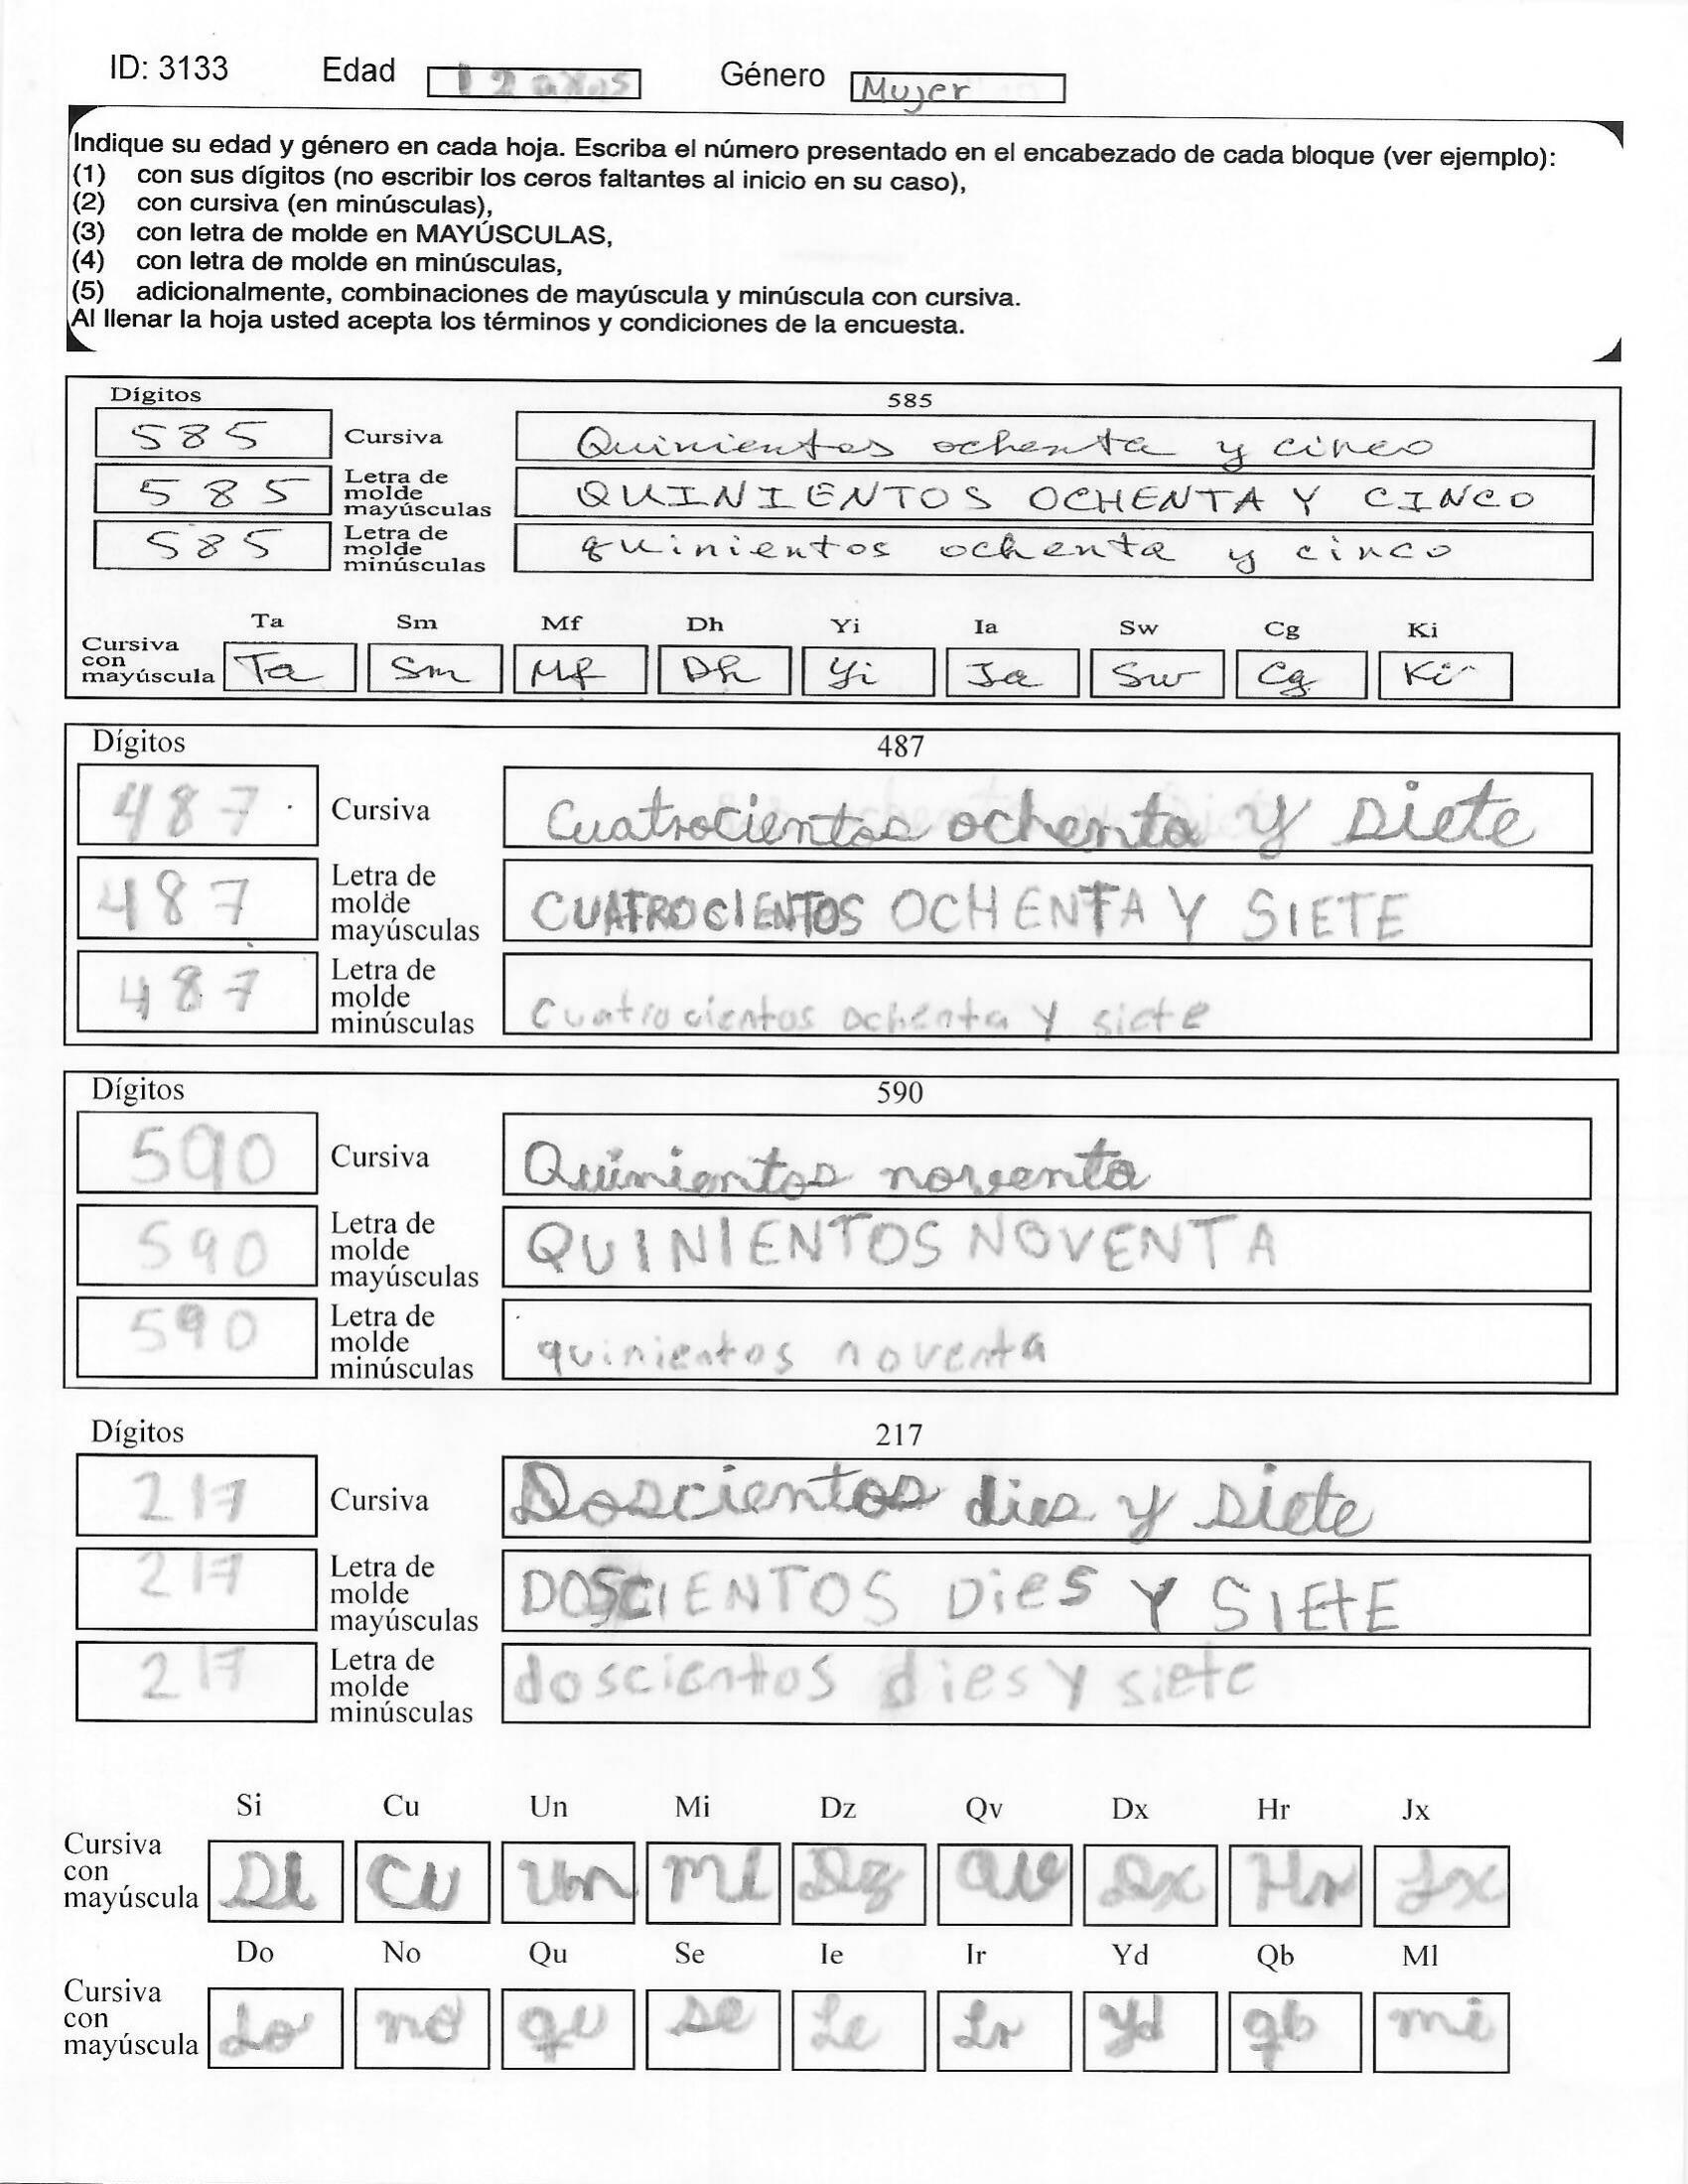 ID: 3133 Edad 12 años Género Mujer
Indique su edad y género en cada hoja. Escriba el número presentado en el encabezado de cada bloque (ver ejemplo):
(1) con sus dígitos (no escribir los ceros faltantes al inicio en su caso),
(2) con cursiva (en minúsculas),
(3) con letra de molde en MAYÚSCULAS,
(4) con letra de molde en minúsculas,
(5) adicionalmente, combinaciones de mayúscula y minúscula con cursiva.
Al llenar la hoja usted acepta los términos y condiciones de la encuesta.
Dígitos 585
585 Cursiva Quinientos ochenta y cinco
585 Letra de molde mayúsculas QUINIENTOS OCHENTA Y CINCO
585 Letra de molde minúsculas quinientos ochenta y cinco
Ta Sm Mf Dh Yi Ia Sw Cg Ki
Cursiva con mayúscula Ta Sm Mf Dh Yi Ia Sw Cg Ki
Dígitos 487
487 Cursiva Cuatrocientos ochenta y siete
487 Letra de molde mayúsculas CUATROCIENTOS OCHENTA Y SIETE
487 Letra de molde minúsculas cuatrocientos ochenta y siete
Dígitos 590
590 Cursiva Quinientos noventa
590 Letra de molde mayúsculas QUINIENTOS NOVENTA
590 Letra de molde minúsculas quinientos noventa
Dígitos 217
217 Cursiva Doscientos dies y siete
217 Letra de molde mayúsculas DOSCIENTOS DieS Y SIEtE
217 Letra de molde minúsculas doscientos dies y siete
Si Cu Un Mi Dz Qv Dx Hr Jx
Cursiva con mayúscula Si Cu Un Mi Dz Qv Dx Hr Jx
Do No Qu Se Ie Ir Yd Qb Ml
Cursiva con mayúscula Do no qu se Ie Ir Yd qb mi